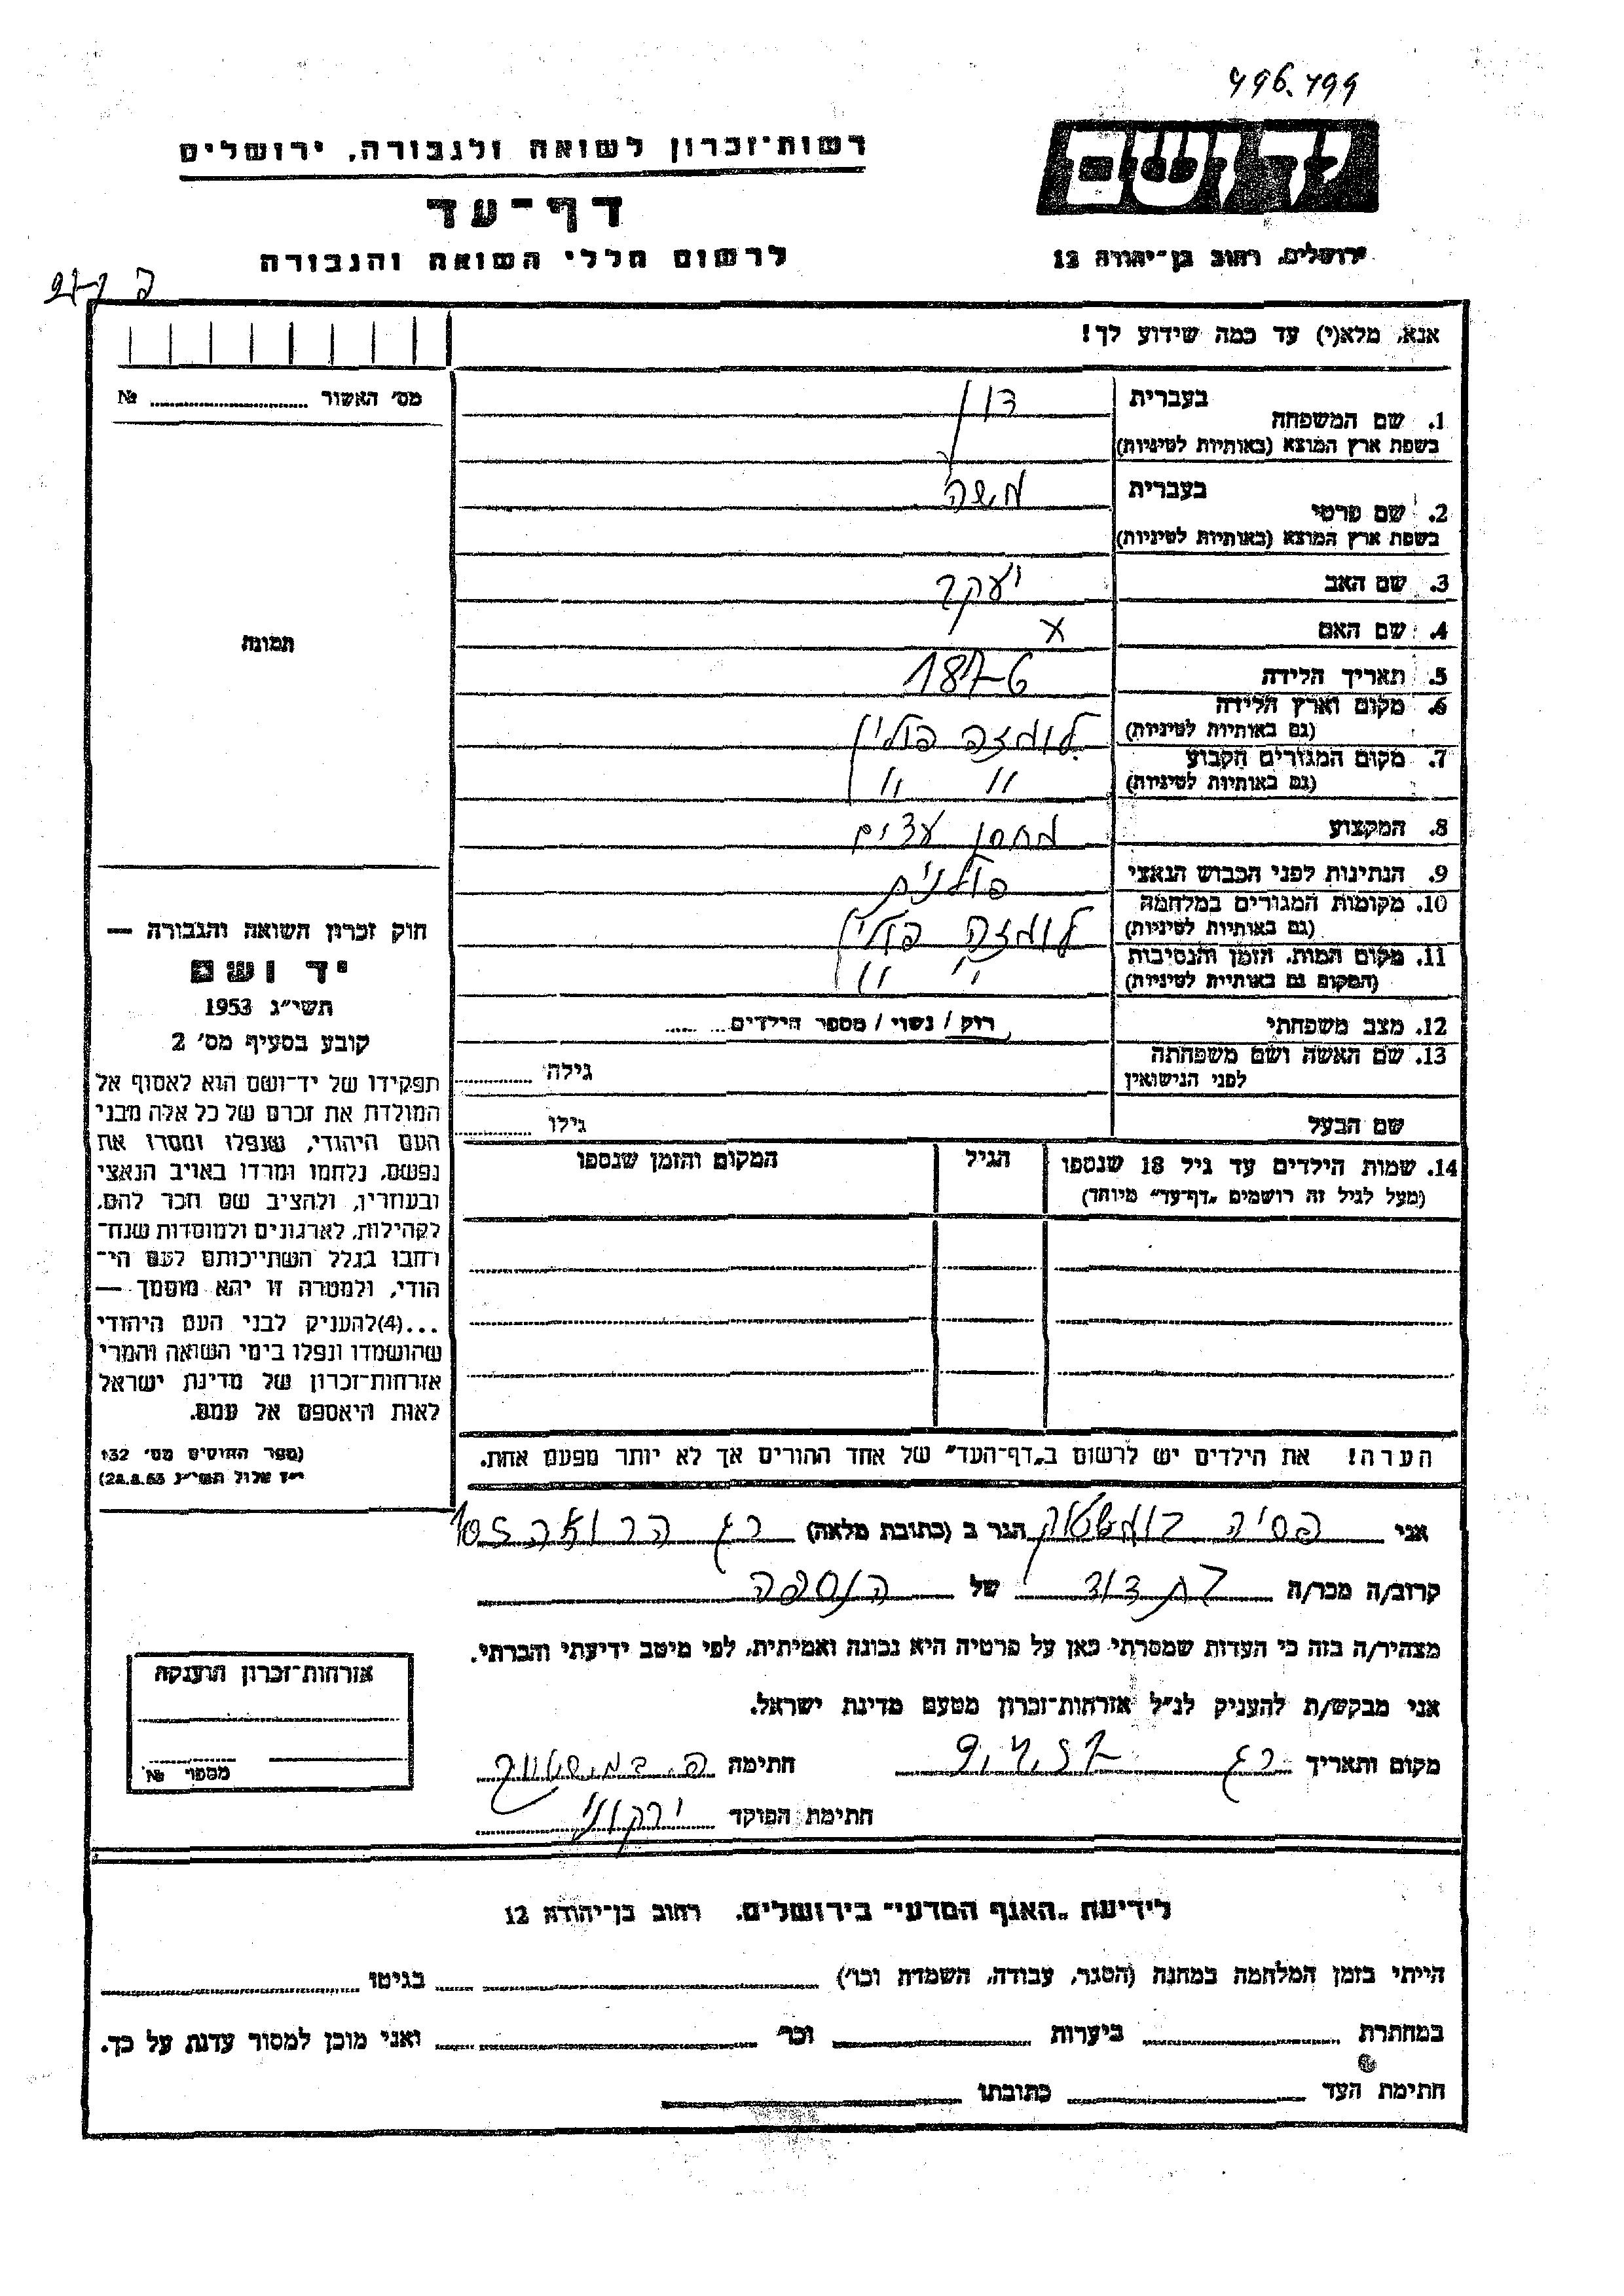 496.499
רשות-זכרון לשואה ולגבורה, ירושלים
יד ושם
דף-עד
לרשום חללי השואה והגבורה
ירושלים, רחוב בן-יהודה 12
אנא, מלא(י) עד כמה שידוע לך!
מס׳ האשור №
1. שם המשפחה
בעברית
בשפת ארץ המוצא (באותיות לטיניות)
2. שם פרטי
בעברית משה
בשפת ארץ המוצא (באותיות לטיניות)
3. שם האב יעקב
4. שם האם x
5. תאריך הלידה 1876
6. מקום וארץ הלידה לומזה פולין
(גם באותיות לטיניות)
7. מקום המגורים הקבוע " "
(גם באותיות לטיניות)
8. המקצוע מחסן עצים
9. הנתינות לפני הכבוש הנאצי פולנית
10. מקומות המגורים במלחמה לומזה פולין
(גם באותיות לטיניות)
11. מקום המות, הזמן והנסיבות " "
(המקום גם באותיות לטיניות)
12. מצב משפחתי רווק / נשוי / מספר הילדים
13. שם האשה ושם משפחתה
לפני הנישואין
גילה
שם הבעל גילו
14. שמות הילדים עד גיל 18 שנספו
(מעל לגיל זה רושמים „דף-עד" מיוחד)
הגיל
המקום והזמן שנספו
הערה! את הילדים יש לרשום ב„דף-העד" של אחד ההורים אך לא יותר מפעם אחת.
תמונה
חוק זכרון השואה והגבורה —
יד ושם
תשי״ג 1953
קובע בסעיף מס׳ 2
תפקידו של יד-ושם הוא לאסוף אל
המולדת את זכרם של כל אלה מבני
העם היהודי, שנפלו ומסרו את
נפשם, נלחמו ומרדו באויב הנאצי
ובעוזריו, ולהציב שם וזכר להם,
לקהילות, לארגונים ולמוסדות שנח-
רבו בגלל השתייכותם לעם הי-
הודי, ולמטרה זו יהא מוסמך —
...(4)להעניק לבני העם היהודי
שהושמדו ונפלו בימי השואה והמרי
אזרחות-זכרון של מדינת ישראל
לאות היאספם אל עמם.
(ספר החוקים מס׳ 132
י״ז אלול תשי״ג 28.8.53)
אני הגר ב (כתובת מלאה) רג
קרוב/ה מכר/ה בת דוד של הנספה
מצהיר/ה בזה כי העדות שמסרתי כאן על פרטיה היא נכונה ואמיתית, לפי מיטב ידיעתי והכרתי.
אני מבקש/ת להעניק לנ״ל אזרחות-זכרון מטעם מדינת ישראל.
מקום ותאריך רג חתימה
חתימת הפוקד ירקוני
אזרחות-זכרון הוענקה
מספר №
לידיעת „האגף המדעי" בירושלים, רחוב בן-יהודה 12
הייתי בזמן המלחמה במחנה (הסגר, עבודה, השמדה וכו׳) בגיטו
במחתרת ביערות וכו׳ ואני מוכן למסור עדות על כך.
חתימת העד כתובתו